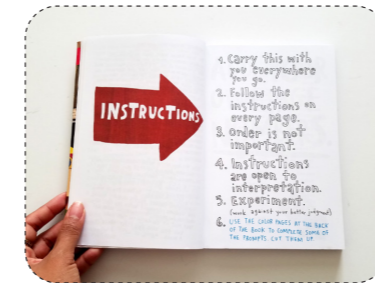 INSTRUCTIONS
1. Carry this with
you everywhere
you go.
2. Follow the
instructions on
every page.
3. Order is not
important.
4. Instructions
are open to
interpretation.
5. Experiment.
(work against your better judgment)
6. USE THE COLOR PAGES AT THE BACK
OF THE BOOK TO COMPLETE SOME OF
THE PROMPTS. CUT THEM UP.